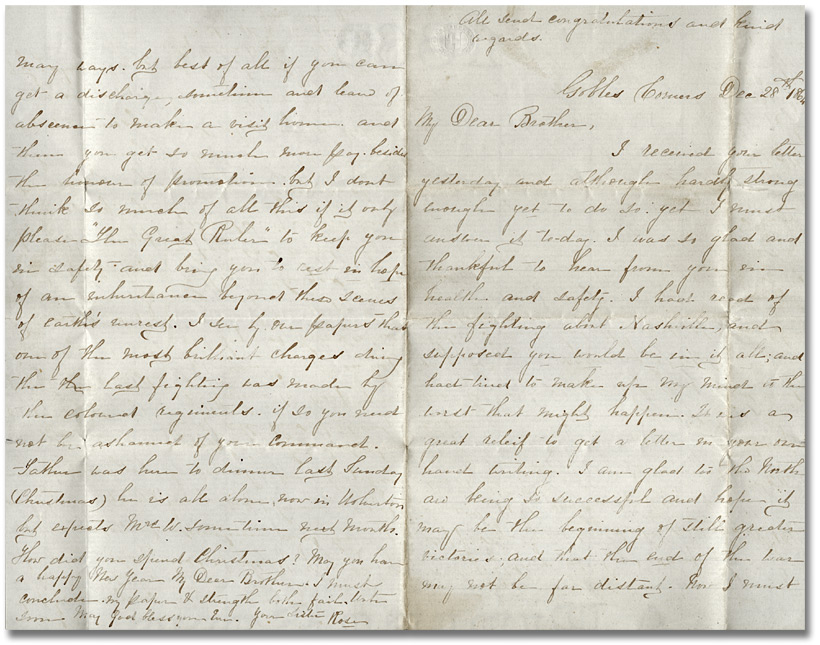 All send congratulations and kind
regards.
Gobles Corners Dec 28th 1864
My Dear Brother,
I received your letter
yesterday and although hardly strong
enough yet to do so yet I must
answer it to-day. I was so glad and
thankful to hear from you in
health and safety. I had read of
the fighting abut Nashville, and
supposed you would be in it all; and
had tried to make up my mind to the
worst that might happen. It is a
great releif to get a letter in your own
hand writing. I am glad to the North
are being so successful and hope it
may be the beginning of still greater
victories and that the end of the war
may not be far distant. Now I must
many ways. but best of all if you can
get a discharge, sometime and leave of
absence to make a visit home. and
then you get so much more pay. besides
the honour of promotion. but I dont
think so much of all this if it only
please "The Great Ruler" to keep you
in safety and bring you to rest in hope
of an inheritance beyond these scenes
of earth's unrest. I see by our papers that
one of the most brilliant charges during
the the last fighting was made by
the coloured regiments. if so you need
not be ashamed of your command.
Father was here to dinner last Sunday
(Christmas) he is all alone now in Wolverton
but expects Mrs W. sometime next month.
How did you spend Christmas? May you have
a happy New Year My Dear Brother. I must
conclude my paper & strength both fail. Write
soon May God bless you. Your sister Rose